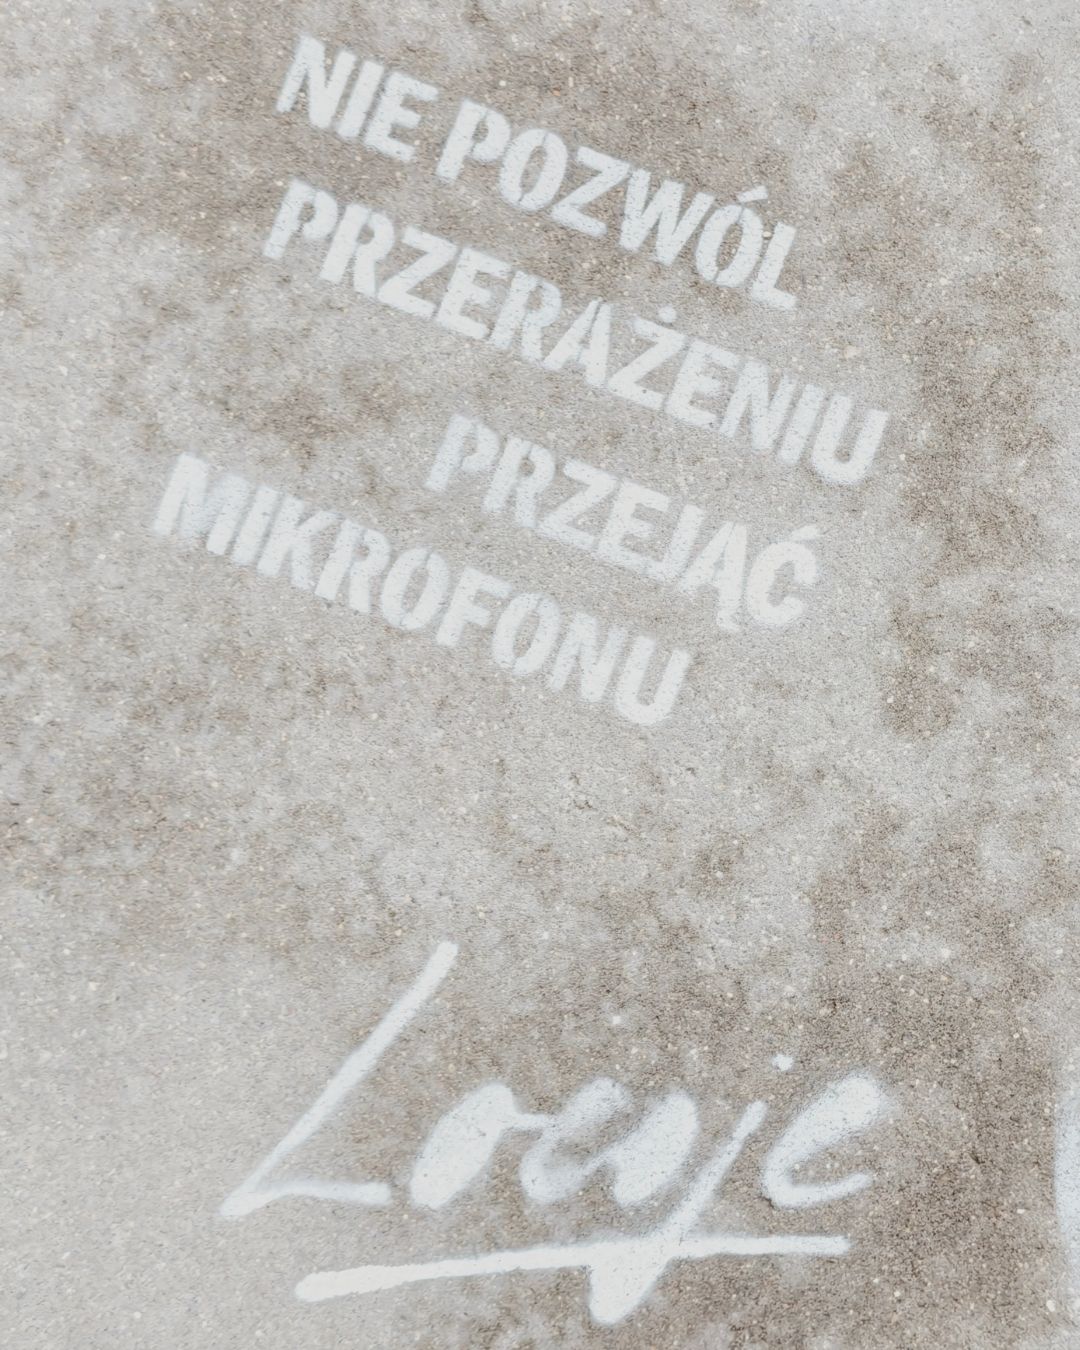 NIE POZWÓL
PRZERAŻENIU
PRZEJĄĆ
MIKROFONU